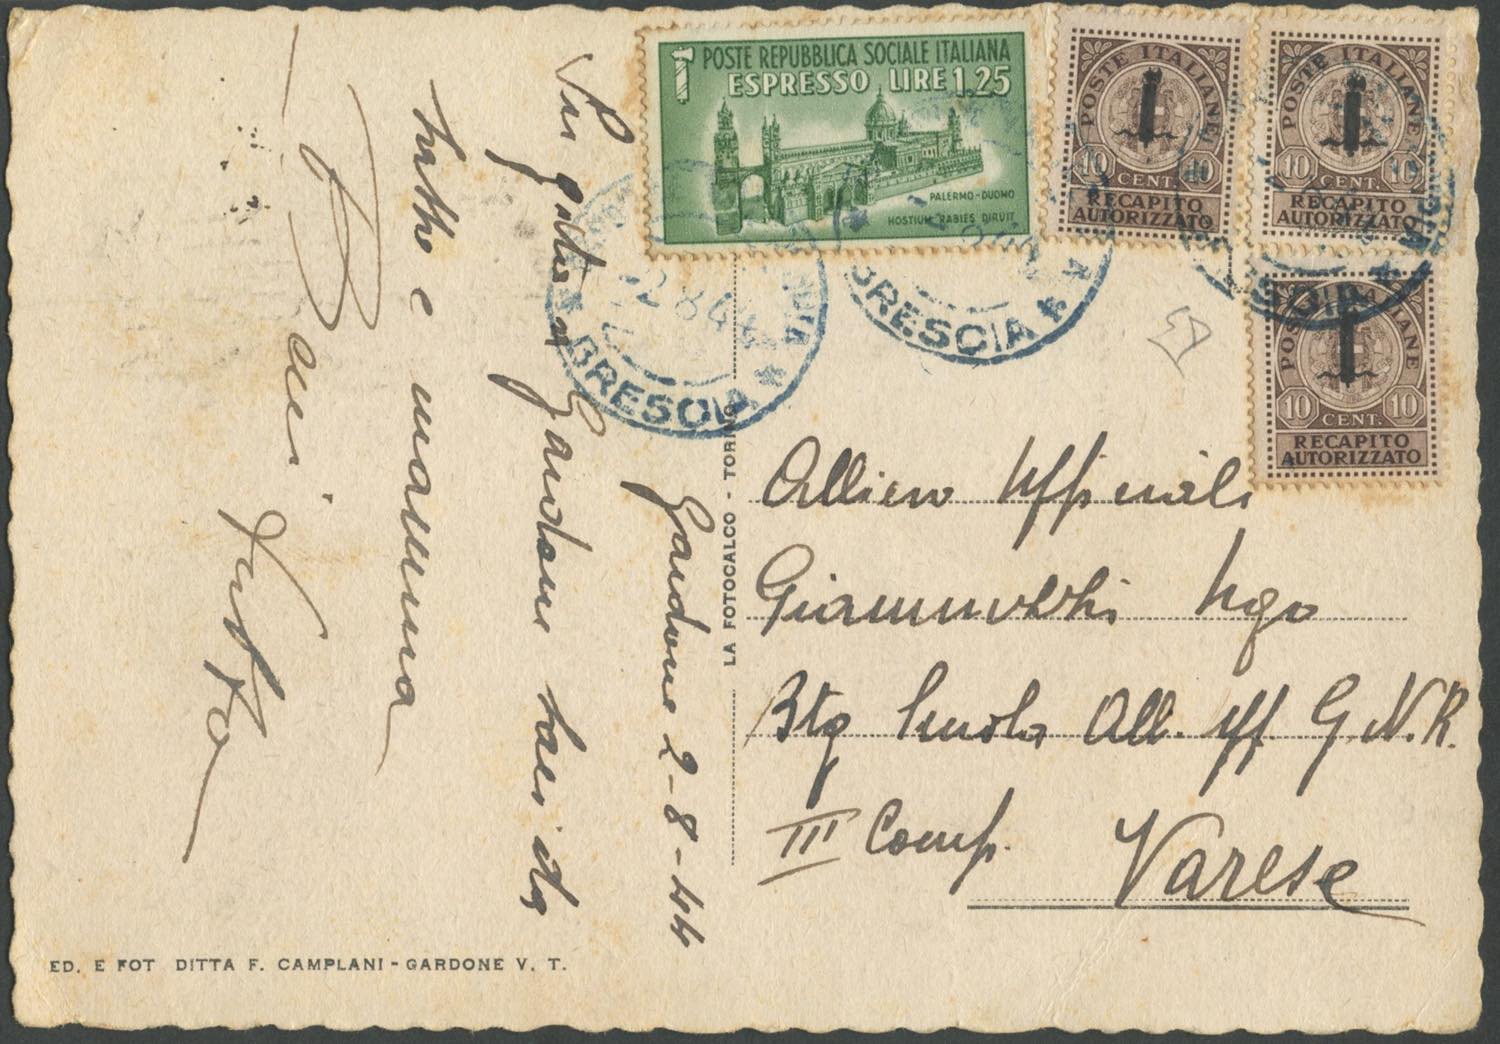 POSTE REPUBBLICA SOCIALE ITALIANA
ESPRESSO LIRE 1,25
PALERMO-DUOMO
HOSTIUM RABIES DIRUIT
POSTE ITALIANE
10 10
CENT.
RECAPITO
AUTORIZZATO
POSTE ITALIANE
10 10
CENT.
RECAPITO
AUTORIZZATO
POSTE ITALIANE
10 10
CENT.
RECAPITO
AUTORIZZATO
2 8 44
BRESCIA *
BRESCIA *
Gardone 2-8-44
Gardone baci da
tutti e mamma
Baci
LA FOTOCALCO - TORINO
Allievo Ufficiale
Ugo
Btg Scuola All. Uff. G.N.R.
III Comp.
Varese
ED. E FOT DITTA F. CAMPLANI - GARDONE V. T.